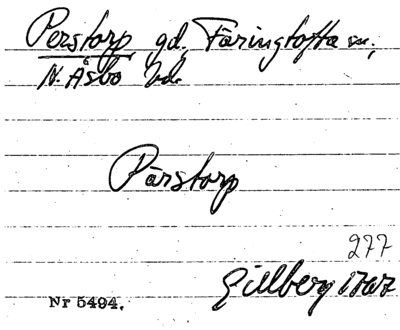 Perstorp gd, Färingtofta sn,
N. Åsbo hd.
Pärstorp
277
Gillberg 1767
Nr 5494.